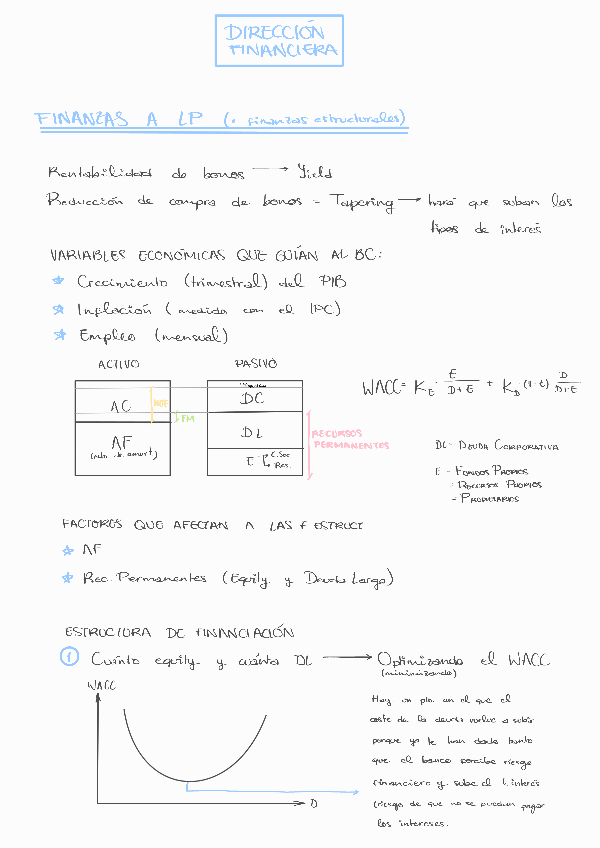 DIRECCIÓN
FINANCIERA
FINANZAS A LP (= finanzas estructurales)
Rentabilidad de bonos → Yield
Reducción de compra de bonos = Tapering → hará que suban los
tipos de interés
VARIABLES ECONÓMICAS QUE GUÍAN AL BC:
Crecimiento (trimestral) del PIB
Inflación (medida con el IPC)
Empleo (mensual)
ACTIVO
PASIVO
AC
AF
(neto de amort)
FM
DC
DL
E
C.Soc
Res.
RECURSOS
PERMANENTES
WACC = K_E · E / (D+E) + K_D (1-t) D / (D+E)
DC - DEUDA CORPORATIVA
E - FONDOS PROPIOS
- RECURSOS PROPIOS
- PROPIETARIOS
FACTORES QUE AFECTAN A LAS F ESTRUCT
AF
Rec. Permanentes (Equity y Deuda Larga)
ESTRUCTURA DE FINANCIACIÓN
1 Cuánto equity y cuánta DL → Optimizando el WACC
(minimizando)
WACC
D
Hay un pto. en el que el
coste de la deuda vuelve a subir
porque ya te han dado tanto
que el banco percibe riesgo
financiero y sube el t. interés
(riesgo de que no se puedan pagar
los intereses.